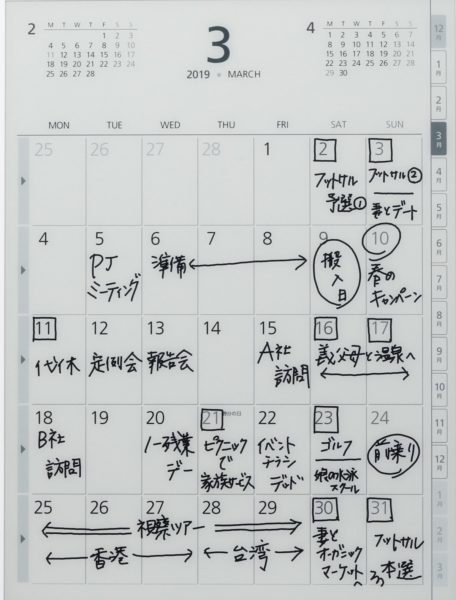 2
M T W T F S S
1 2 3
4 5 6 7 8 9 10
11 12 13 14 15 16 17
18 19 20 21 22 23 24
25 26 27 28
3
2019 MARCH
4
M T W T F S S
1 2 3 4 5 6 7
8 9 10 11 12 13 14
15 16 17 18 19 20 21
22 23 24 25 26 27 28
29 30
12月
1月
2月
3月
4月
5月
6月
7月
8月
9月
10月
11月
12月
1月
2月
3月
MON TUE WED THU FRI SAT SUN
25 26 27 28 1 2 3
フットサル
予選①
フットサル②
妻とデート
4 5 6 7 8 9 10
PJ
ミーティング
準備
搬
入
日
春の
キャンペーン
11 12 13 14 15 16 17
代休
定例会
報告会
A社
訪問
義父母と温泉へ
18 19 20 21 22 23 24
B社
訪問
ノー残業
デー
ピクニック
で
家族サービス
イベント
チラシ
デッド
ゴルフ
娘の水泳
スクール
前乗り
25 26 27 28 29 30 31
視察ツアー
香港
台湾
妻と
オーガニック
マーケットへ
フットサル
本選